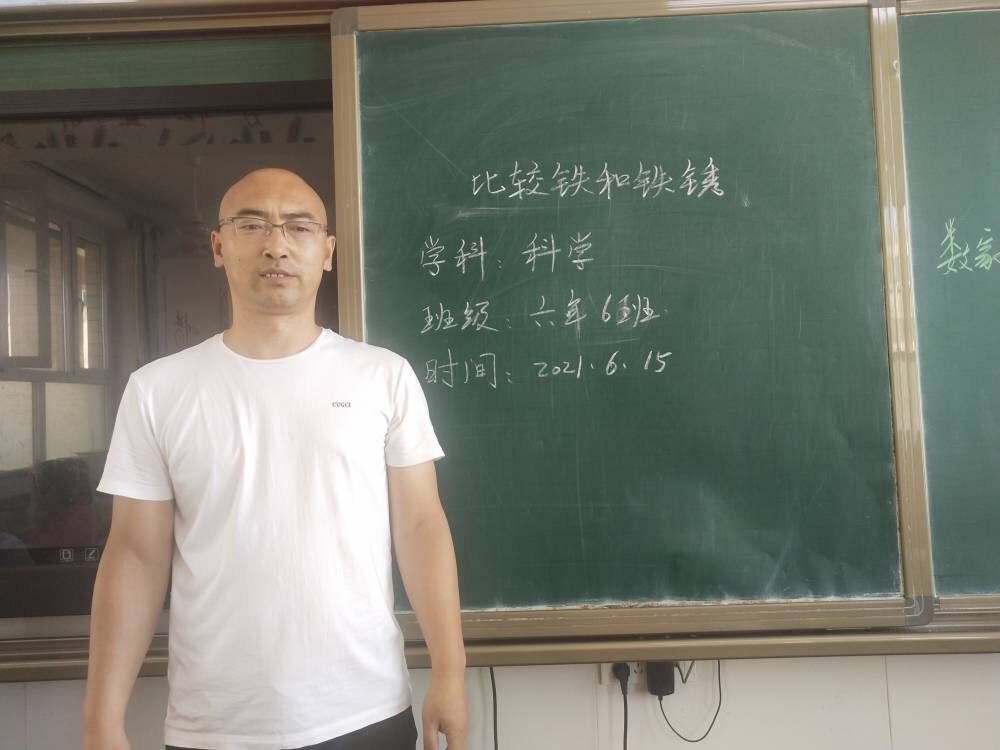 比较铁和铁锈
学科：科学
班级：六年6班
时间：2021.6.15
CUGCI